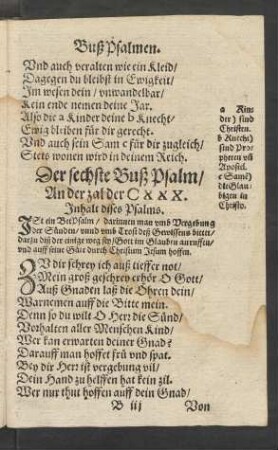 Buß Psalmen.
Vnd auch veralten wie ein Kleid/
Dagegen du bleibst in Ewigkeit/
Im wesen dein/ vnwandelbar/
Kein ende nemen deine Jar.
Also die a Kinder deine b Knecht/
Ewig bleiben für dir gerecht.
Vnd auch sein Sam c für dir zugleich/
Stets wonen wird in deinem Reich.
a Kin-
der) sind
Christen.
b Knecht)
sind Pro-
pheten vñ
Apostel.
c Samẽ)
die Glau-
bigen in
Christo.
Der sechste Buß Psalm/
An der zal der CXXX.
Inhalt dises Psalms.
ISt ein BetPsalm/ darinnen man vmb Vergebung
der Sünden/ vnnd vmb Trost deß Gewissens bittet/
darzu diß der einige weg sey/ Gott im Glauben anruffen/
vnd auff seine Güte durch Christum Jesum hoffen.
ZV dir schrey ich auß tieffer not/
Mein groß geschrey erhör O Gott/
Auß Gnaden laß die Ohren dein/
Warnemen auff die Bitte mein.
Denn so du wilt O Herr die Sünd/
Vorhalten aller Menschen Kind/
Wer kan erwarten deiner Gnad?
Darauff man hoffet frü vnd spat.
Bey dir Herr ist vergebung vil/
Dein Hand zu helffen hat kein zil.
Wer nur thut hoffen auff dein Gnad/
B iij Von